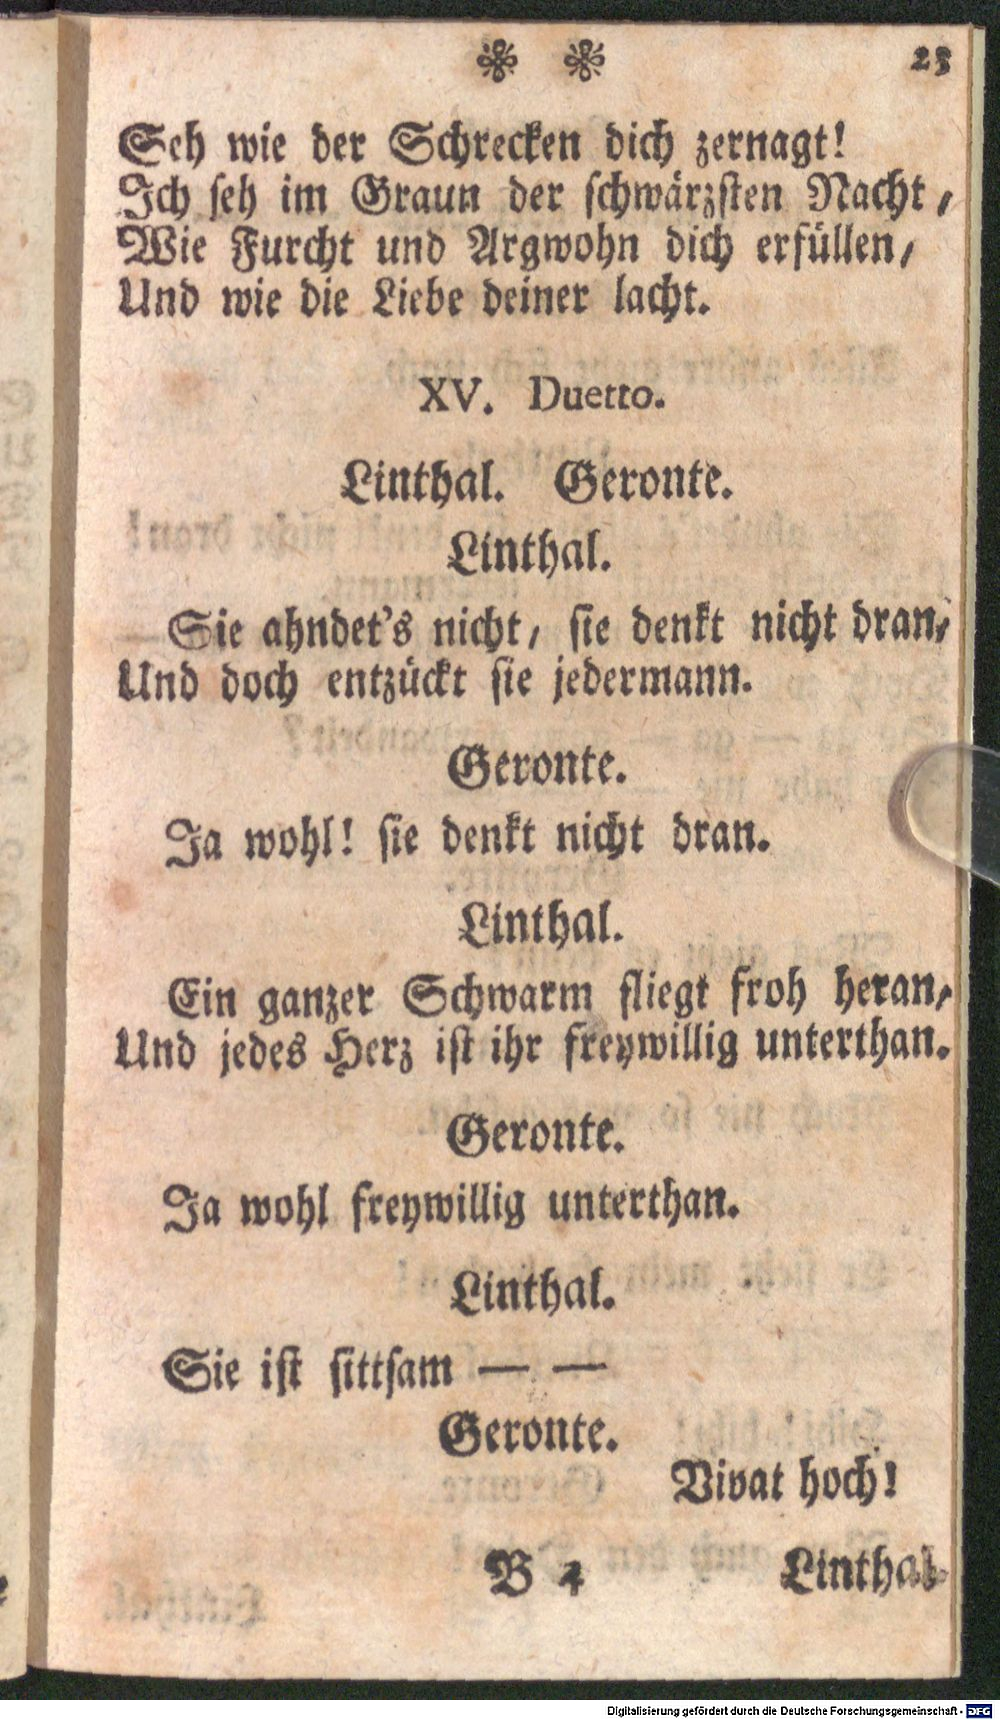 23
Seh wie der Schrecken dich zernagt!
Ich seh im Graun der schwärzsten Nacht,
Wie Furcht und Argwohn dich erfüllen,
Und wie die Liebe deiner lacht.
XV. Duetto.
Linthal. Geronte.
Linthal.
Sie ahndet's nicht, sie denkt nicht dran,
Und doch entzückt sie jedermann.
Geronte.
Ja wohl! sie denkt nicht dran.
Linthal.
Ein ganzer Schwarm fliegt froh heran,
Und jedes Herz ist ihr freywillig unterthan.
Geronte.
Ja wohl freywillig unterthan.
Linthal.
Sie ist sittsam — —
Geronte.
Vivat hoch!
B 4 Linthal.
Digitalisierung gefördert durch die Deutsche Forschungsgemeinschaft - DFG